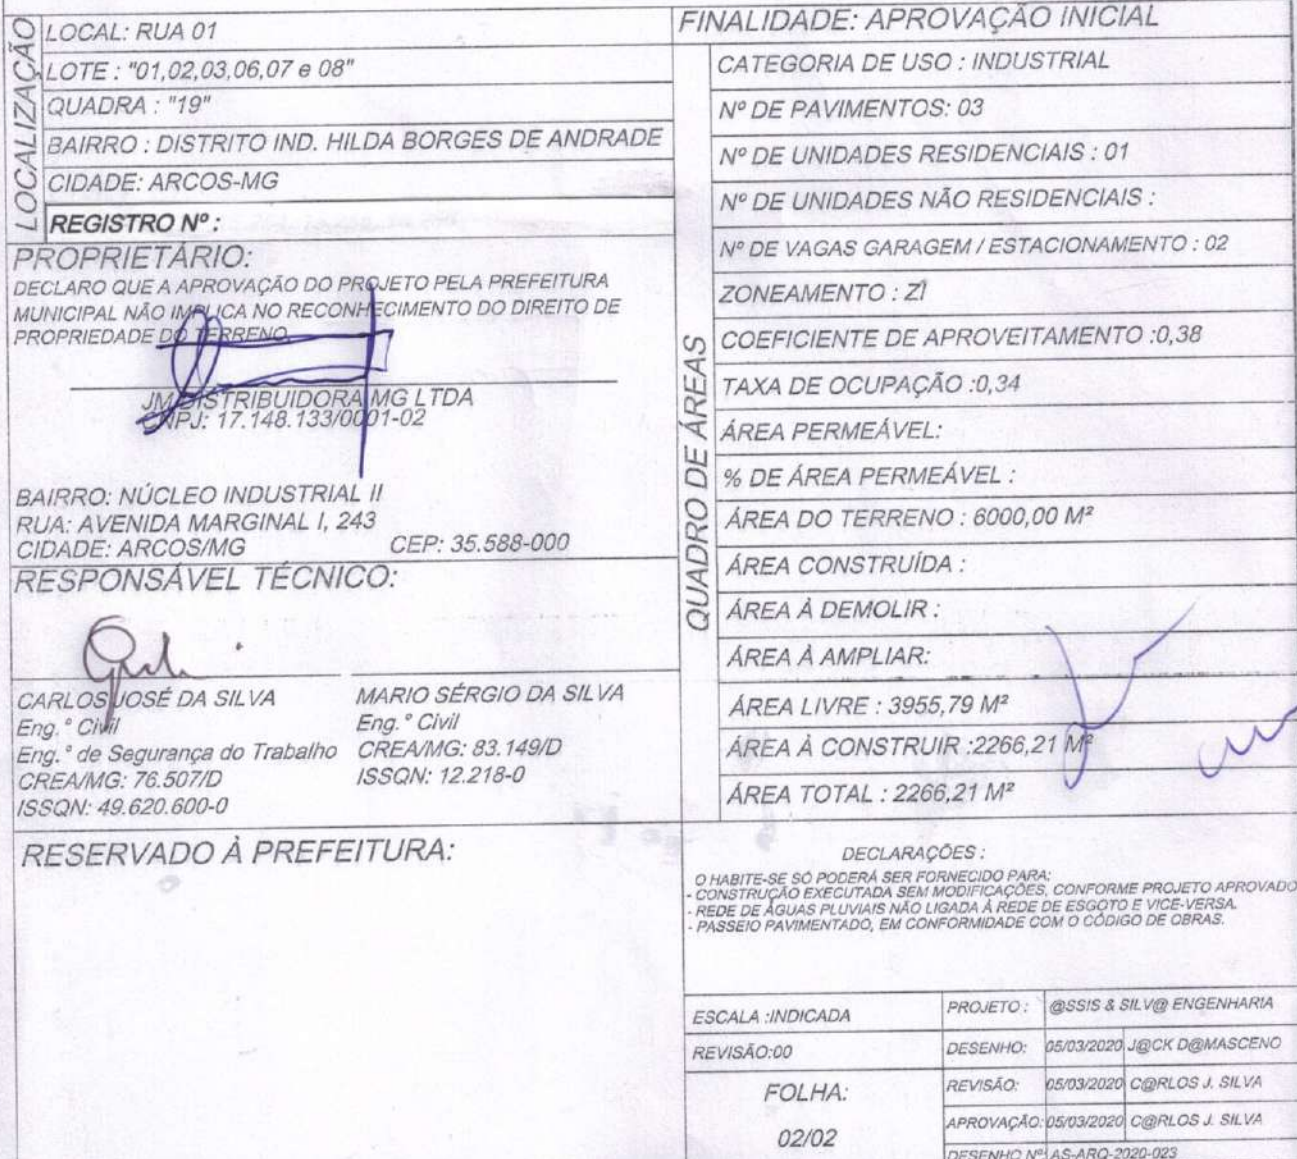 LOCALIZAÇÃO
LOCAL: RUA 01
LOTE : "01,02,03,06,07 e 08"
QUADRA : "19"
BAIRRO : DISTRITO IND. HILDA BORGES DE ANDRADE
CIDADE: ARCOS-MG
REGISTRO Nº :
PROPRIETÁRIO:
DECLARO QUE A APROVAÇÃO DO PROJETO PELA PREFEITURA
MUNICIPAL NÃO IMPLICA NO RECONHECIMENTO DO DIREITO DE
PROPRIEDADE DO TERRENO.
JM DISTRIBUIDORA MG LTDA
CNPJ: 17.148.133/0001-02
BAIRRO: NÚCLEO INDUSTRIAL II
RUA: AVENIDA MARGINAL I, 243
CIDADE: ARCOS/MG CEP: 35.588-000
RESPONSÁVEL TÉCNICO:
CARLOS JOSÉ DA SILVA
Eng.º Civil
Eng.º de Segurança do Trabalho
CREA/MG: 76.507/D
ISSQN: 49.620.600-0
MARIO SÉRGIO DA SILVA
Eng.º Civil
CREA/MG: 83.149/D
ISSQN: 12.218-0
RESERVADO À PREFEITURA:
FINALIDADE: APROVAÇÃO INICIAL
QUADRO DE ÁREAS
CATEGORIA DE USO : INDUSTRIAL
Nº DE PAVIMENTOS: 03
Nº DE UNIDADES RESIDENCIAIS : 01
Nº DE UNIDADES NÃO RESIDENCIAIS :
Nº DE VAGAS GARAGEM / ESTACIONAMENTO : 02
ZONEAMENTO : ZI
COEFICIENTE DE APROVEITAMENTO :0,38
TAXA DE OCUPAÇÃO :0,34
ÁREA PERMEÁVEL:
% DE ÁREA PERMEÁVEL :
ÁREA DO TERRENO : 6000,00 M²
ÁREA CONSTRUÍDA :
ÁREA À DEMOLIR :
ÁREA À AMPLIAR:
ÁREA LIVRE : 3955,79 M²
ÁREA À CONSTRUIR :2266,21 M²
ÁREA TOTAL : 2266,21 M²
DECLARAÇÕES :
O HABITE-SE SÓ PODERÁ SER FORNECIDO PARA:
- CONSTRUÇÃO EXECUTADA SEM MODIFICAÇÕES, CONFORME PROJETO APROVADO
- REDE DE ÁGUAS PLUVIAIS NÃO LIGADA À REDE DE ESGOTO E VICE-VERSA.
- PASSEIO PAVIMENTADO, EM CONFORMIDADE COM O CÓDIGO DE OBRAS.
ESCALA :INDICADA
REVISÃO:00
FOLHA:
02/02
PROJETO : @SSIS & SILV@ ENGENHARIA
DESENHO: 05/03/2020 J@CK D@MASCENO
REVISÃO: 05/03/2020 C@RLOS J. SILVA
APROVAÇÃO: 05/03/2020 C@RLOS J. SILVA
DESENHO Nº: AS-ARQ-2020-023